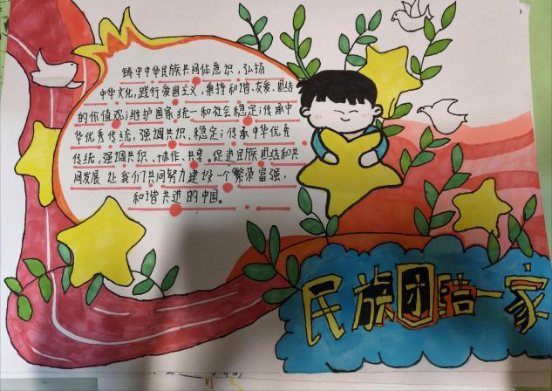 铸牢中华民族共同体意识，弘扬
中华文化，践行爱国主义，秉持和谐、友爱、团结
的价值观；维护国家统一和社会稳定；传承中
华优秀传统，强调共识，稳定；传承中华优秀
传统，强调共识、协作、共享。促进民族团结和共
同发展，让我们共同努力建设一个繁荣富强，
和谐共进的中国。
民族团结一家